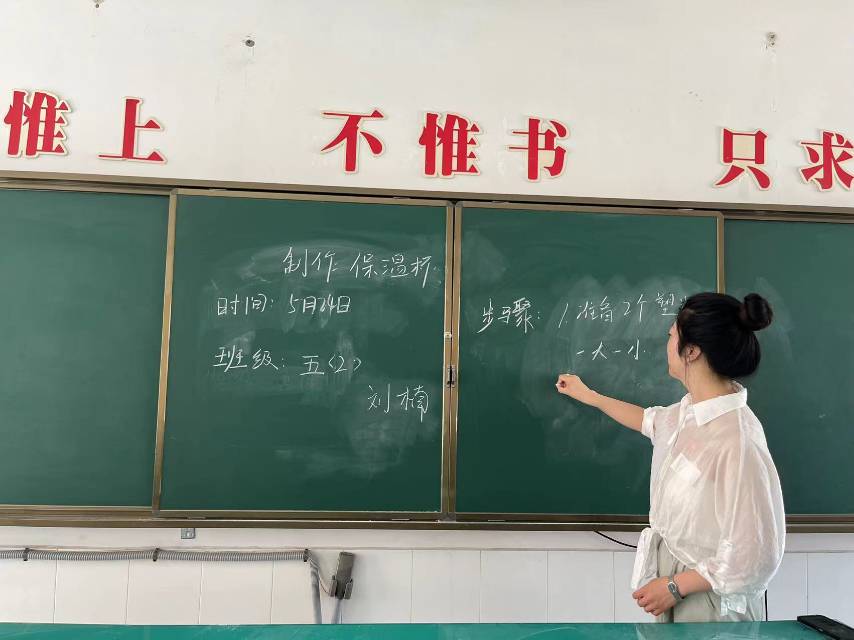 惟上 不惟书 只求
制作保温杯
时间: 5月24日
班级: 五(2)
刘楠
步骤: 1.准备2个塑
一大一小.